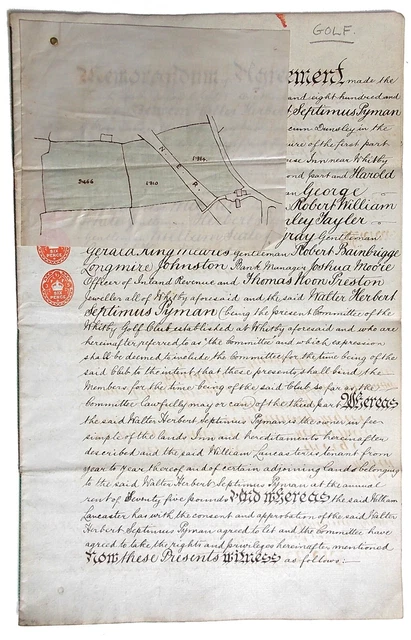 GOLF.
Memorandum
ement made the
and eight hundred and
Septimus Pyman
cum Dunsley in the
of the first part
Inn near Whitby
ond part and Harold
George
Robert William
Tayler
Gentleman
2466
1210
N. E. R.
Gerald King Meares Gentleman Robert Bainbrigge
Longmire Johnston Bank Manager Joshua Moore
Officer of Inland Revenue and Thomas Preston
Jeweller all of Whitby aforesaid and the said Walter Herbert
Septimus Pyman (being the present Committee of the
Whitby Golf Club established at Whitby aforesaid and who are
hereinafter referred to as "the Committee and which expression
shall be deemed to include the Committee for the time being of the
said Club to the intent that these presents shall bind the
Members for the time being of the said Club so far as the
Committee lawfully may or can) of the third part Whereas
the said Walter Herbert Septimus Pyman is the owner in fee
simple of the lands Inn and hereditaments hereinafter
described and the said William Lancaster is tenant from
year to year thereof and of certain adjoining lands belonging
to the said Walter Herbert Septimus Pyman at the annual
rent of Seventy five pounds And whereas the said William
Lancaster has with the consent and approbation of the said Walter
Herbert Septimus Pyman agreed to let and the Committee have
agreed to take the rights and privileges hereinafter mentioned
Now these Presents witness as follows:—